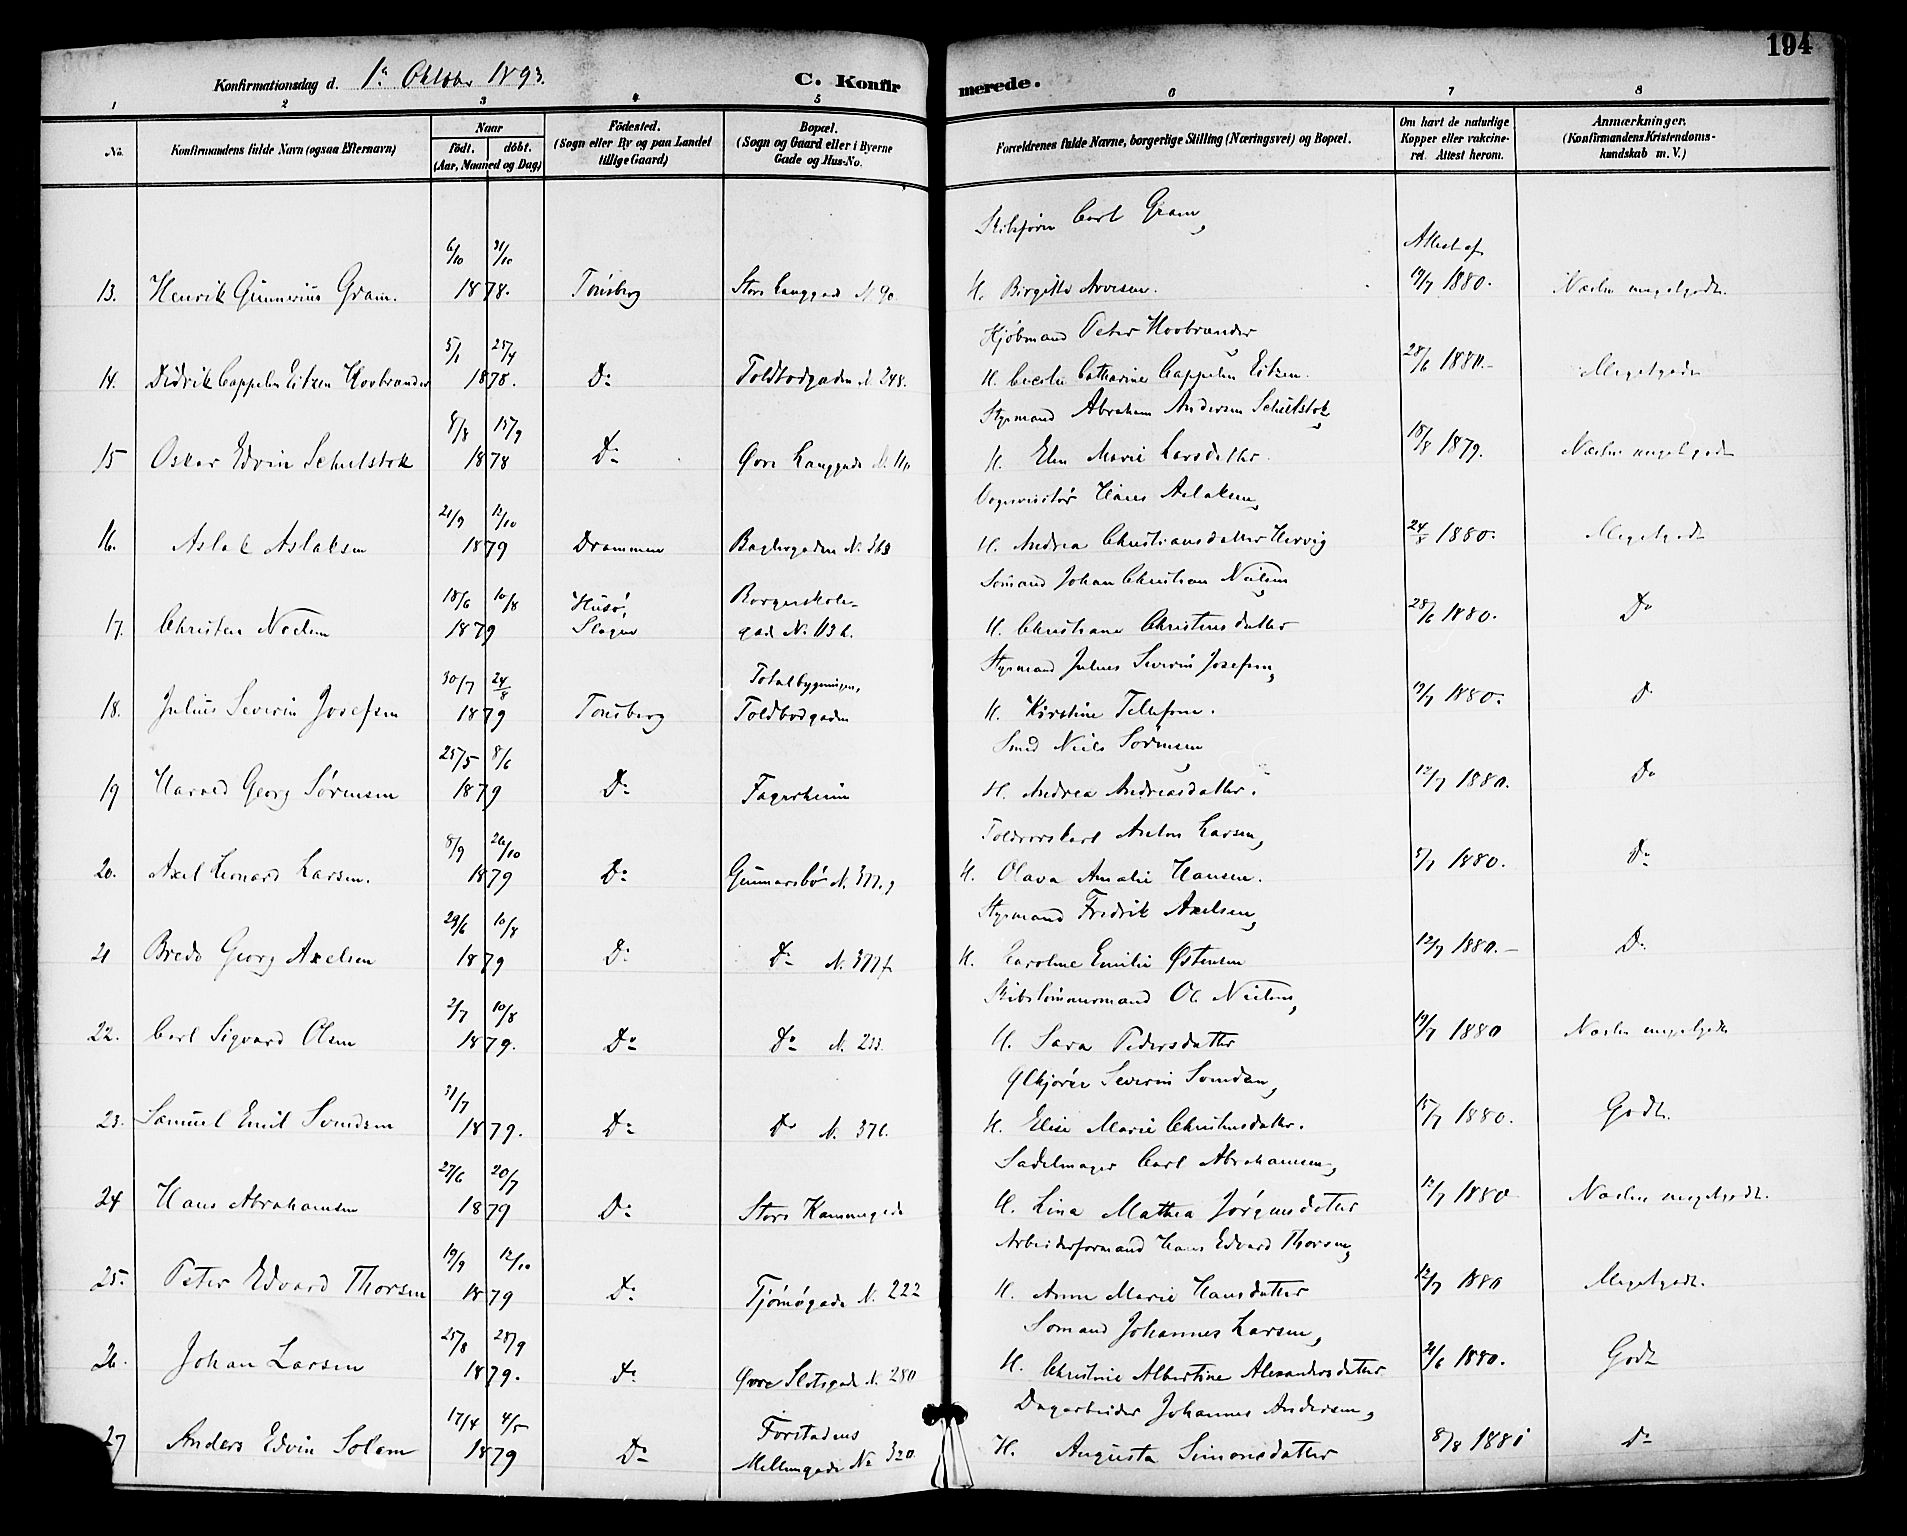 194
Konfirmationsdag d. 1ste Oktober 1893. C. Konfirmerede.
1 2 3 4 5 6 7 8
No. Konfirmandens fulde Navn (ogsaa Efternavn) Naar født. døbt. (Aar, Maaned og Dag) Födested. (Sogn eller By og paa Landet tillige Gaard) Bopæl. (Sogn og Gaard eller i Byerne Gade og Hus-No. Forældrenes fulde Navne, borgerlige Stilling (Næringsvei) og Bopæl. Om havt de naturlige Kopper eller vakcineret. Attest herom. Anmærkninger. (Konfirmandens Kristendomskundskab m. V.)
6/10 31/10 Carl Gram, Attest af
13. Henrik Gunnerius Gram. 1878. Tönsberg Store Langgade N. 90. H. Birgitte Arvesen. 19/7 1880. Næsten megetgodt.
5/1 25/4 Kjöbmand Peter Hovbrender
14. Didrik Cappelen Eitzen Hovbrender 1878. Do Toldbodgaden N. 248. H. Cecilie Catharine Cappelen Eitzen. 28/6 1880.- Megetgodt
8/8 15/9 Styrmand Abraham Andersen Schulstok
15 Oskar Edvin Schulstok 1878 Do Øvre Langgade N. 110 H. Elen Marie Larsdatter. 18/8 1879. Næsten megetgodt
21/9 12/10 Hans Aslaksen,
16. Aslak Aslaksen 1879 Drammen Baglergaden N. 363 H. Andrea Christiansdatter Hervig 24/8 1880. Megetgodt
18/6 10/8 Husö, Borgerskole- Sömand Johan Christian Nielsen
17. Christen Nielsen 1879 Slagen gade N. 113 b. H. Christiane Christensdatter 28/6 1880. Do
30/7 24/8 Totalbygningen, Styrmand Julius Severin Josefsen,
18. Julius Severin Josefsen 1879 Tönsberg Toldbodgaden H. Kirstine Tellefsen. 19/7 1880. D
25/5 8/6 Smed Niels Sörensen
19 Harald Georg Sørensen 1879 Do Fagerheim H. Andrea Andreasdatter. 12/7 1880. Do
8/9 26/10 Toldrorskarl Anton Larsen,
20. Axel Leonard Larsen. 1879 Do Gunnarsbø N. 377.g H. Olava Amalie Hansen. 5/7 1880. Do
29/6 10/8 Styrmand Fredrik Axelsen,
21 Bredo Georg Axelsen 1879 Do Do N. 377f H. Caroline Emilie Østensen 12/7 1880.- Do
2/7 10/8 Skibstömmermand Ole Nielsen,
22. Carl Sigvard Olsen 1879. Do Do N. 233. H. Sara Pedersdatter 19/7 1880 Næsten megetgodt
31/7 Severin Svendsen,
23. Samuel Emil Svendsen 1879. Do Do N. 376. H. Elise Marie Christensdatter. 15/7 1880. Godt.
27/6 20/7 Sadelmager Carl Abrahamsen,
24 Hans Abrahamsen 1879 Do Store H. Lina Mathea Jörgensdatter 12/7 1880 Næsten megetgodt.
19/9 12/10 Arbeiderformand Hans Edvard Thorsen,
25. Peter Edvard Thorsen 1879 Do Tjömögade N. 222 H. Anne Marie Hansdatter 12/7 1880 Megetgodt.
25/8 28/9 Sömand Johannes Larsen,
26. Johan Larsen 1879. Do Øvre Slotsgade N. 280 H. Christine Albertine Alexandersdatter 21/6 1880. Godt
17/4 4/5 Forstadens Dagarbeider Johannes Andersen,
27 Anders Edvin Solem 1879 Do Mellemgade No 320 H. Augusta Simonsdatter 8/8 1881 Do